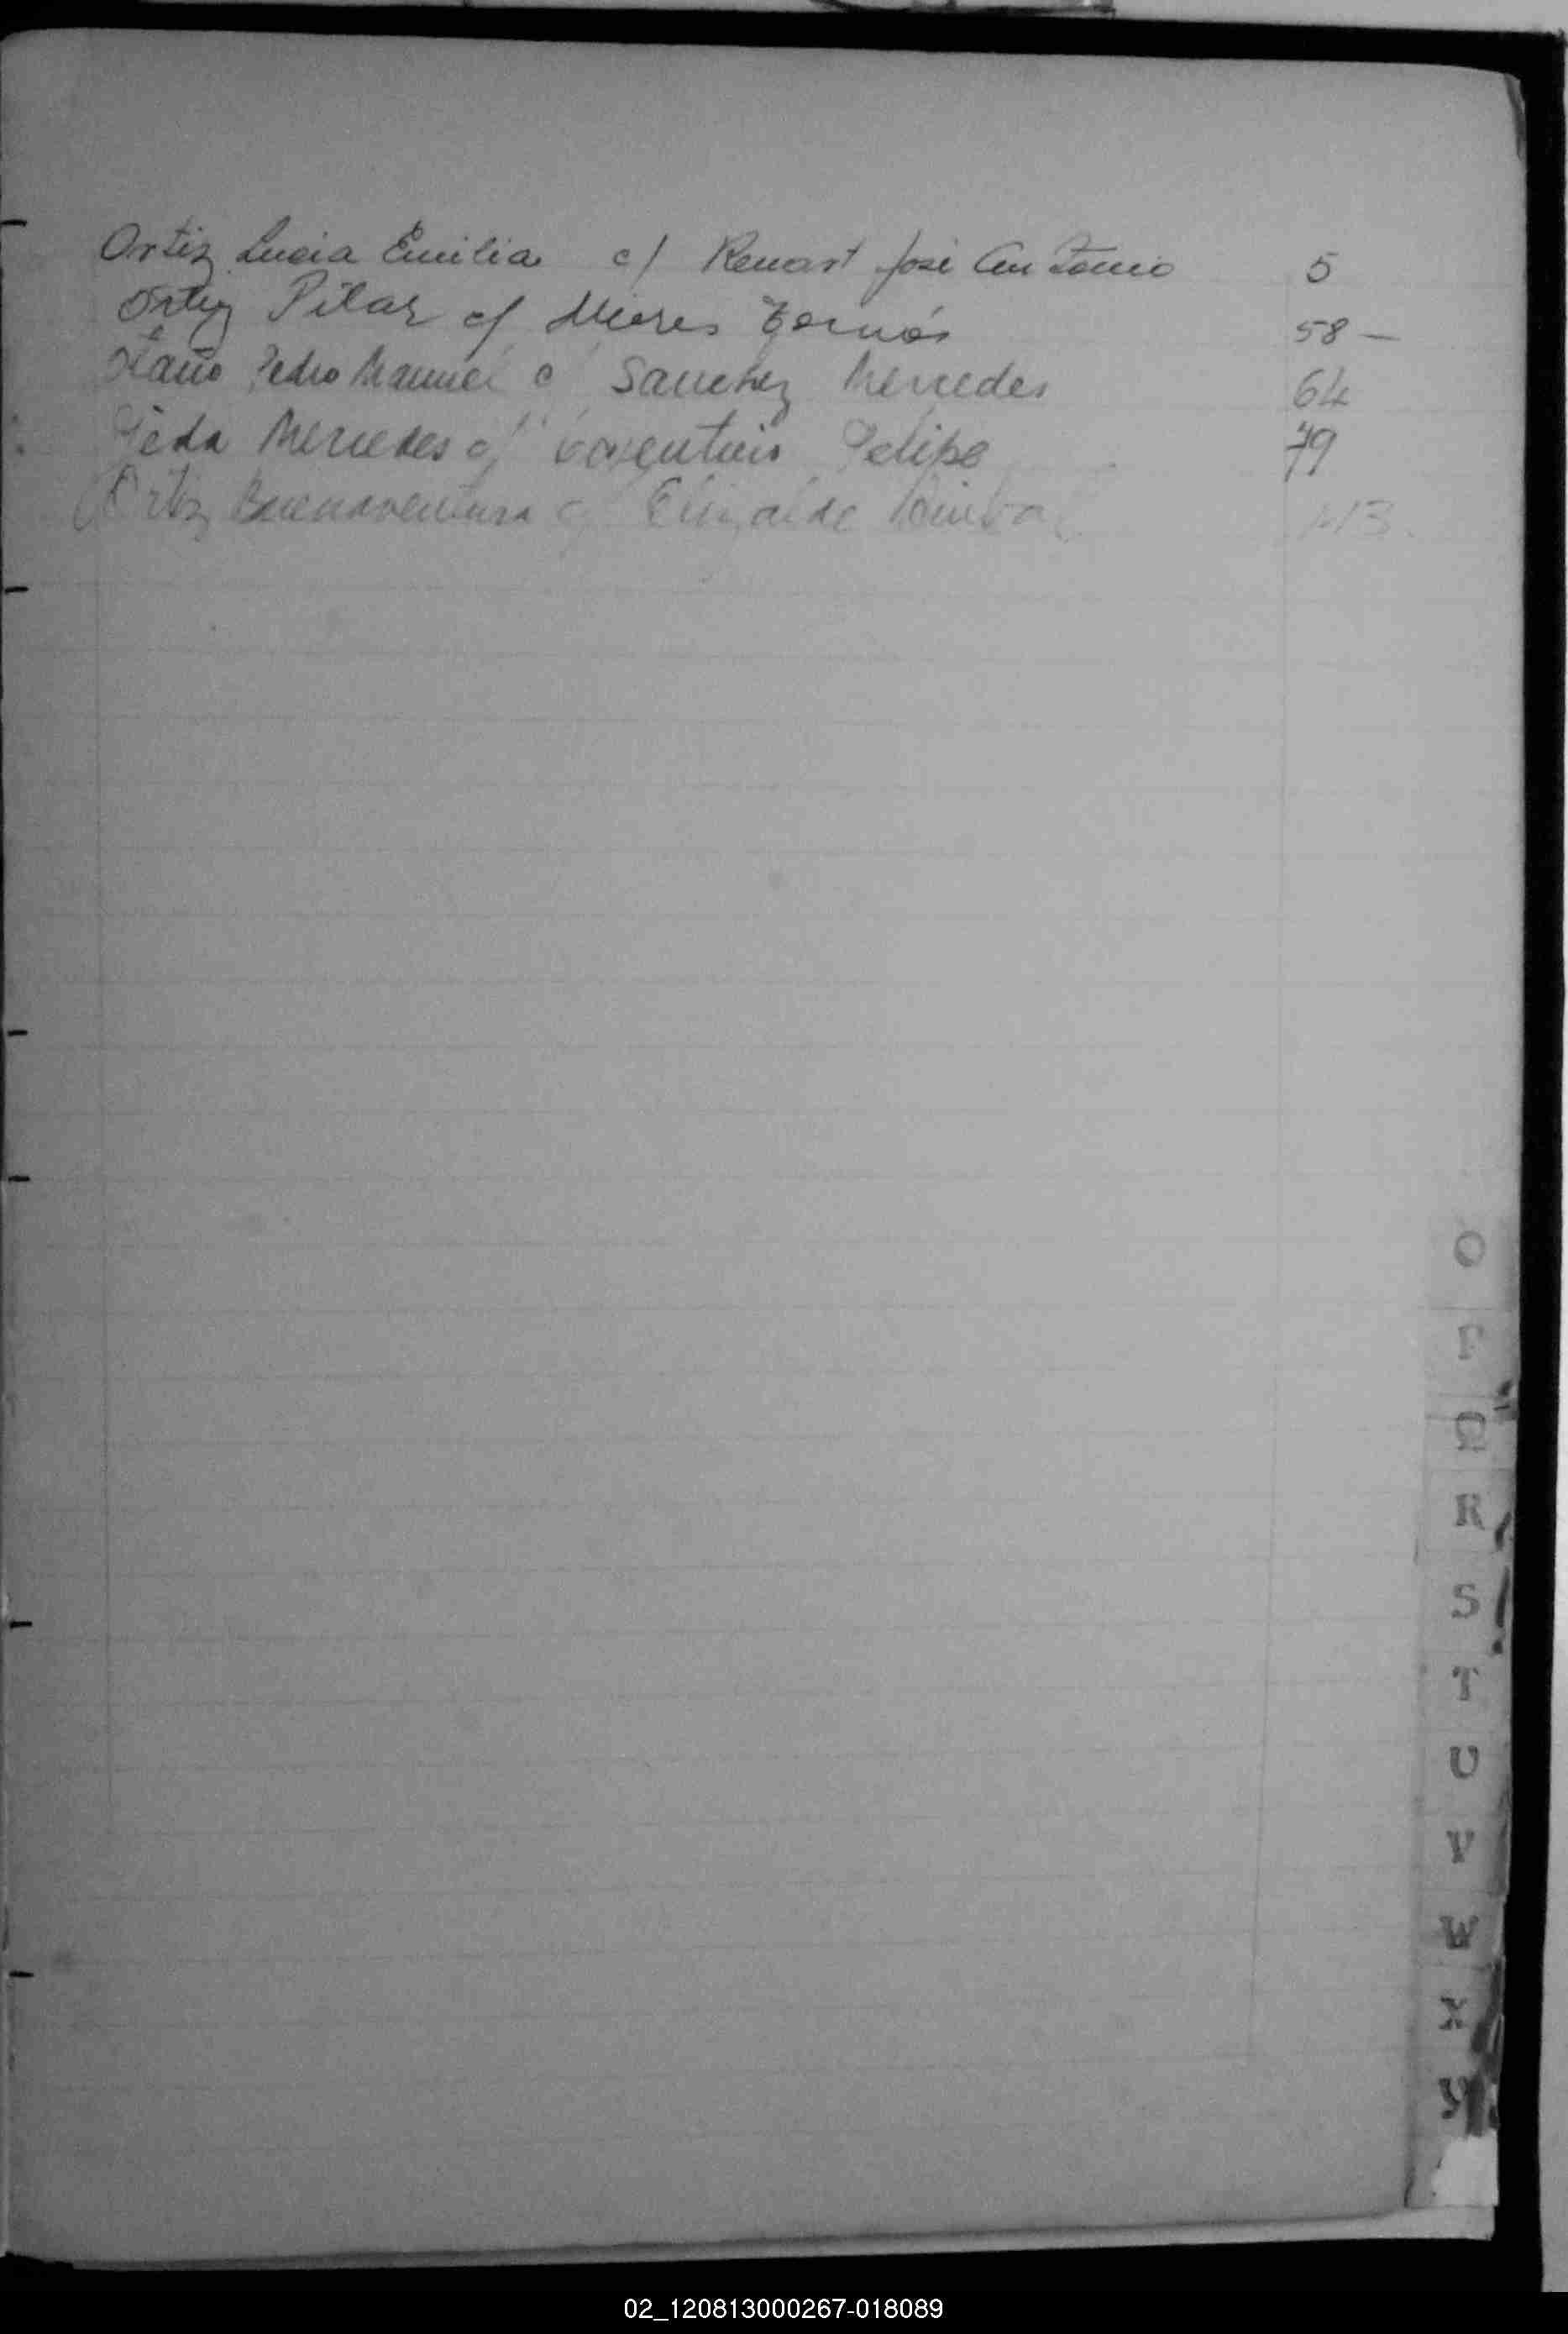 Ortiz Lucia Emilia c/ Renart José Antonio 5
Ortiz Pilar c/ Mieres Tomás 58 —
Olaño Pedro Manuel c/ Sanchez Mercedes 64
Mercedes c/ Felipe 79
Ortiz Buenaventura c/ Elizalde 113
O
P
Q
R
S
T
U
V
W
X
Y
02_120813000267-018089